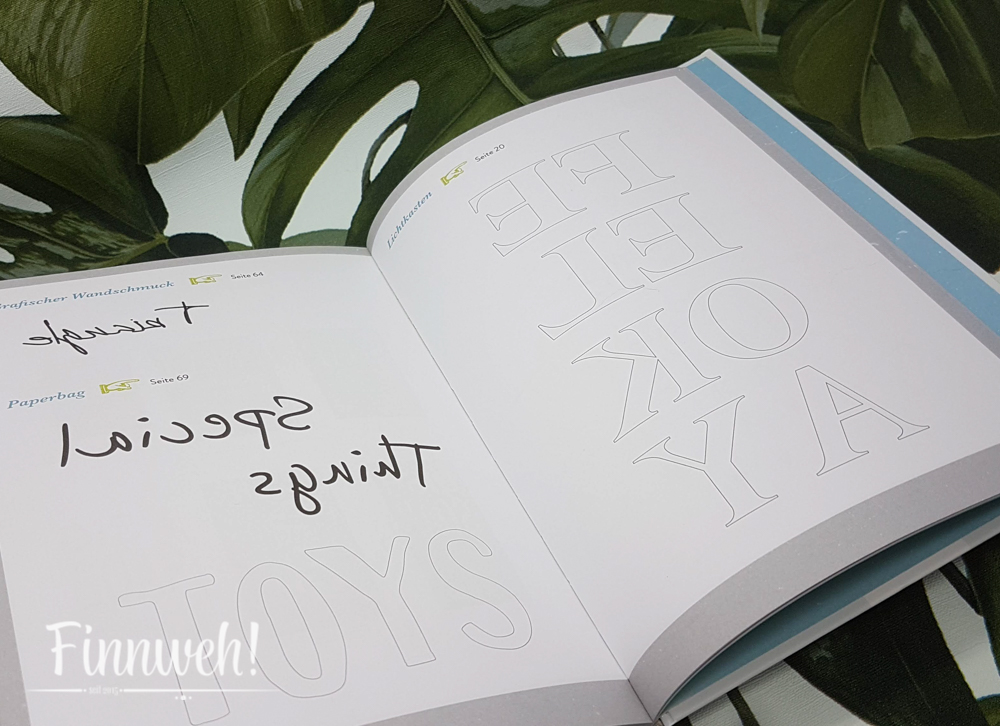 rafischer Wandschmuck Seite 64
Triangle
Paperbag Seite 69
Special
Things
TOYS
Lichtkasten Seite 20
FE
EL
OK
AY
Finnweh!